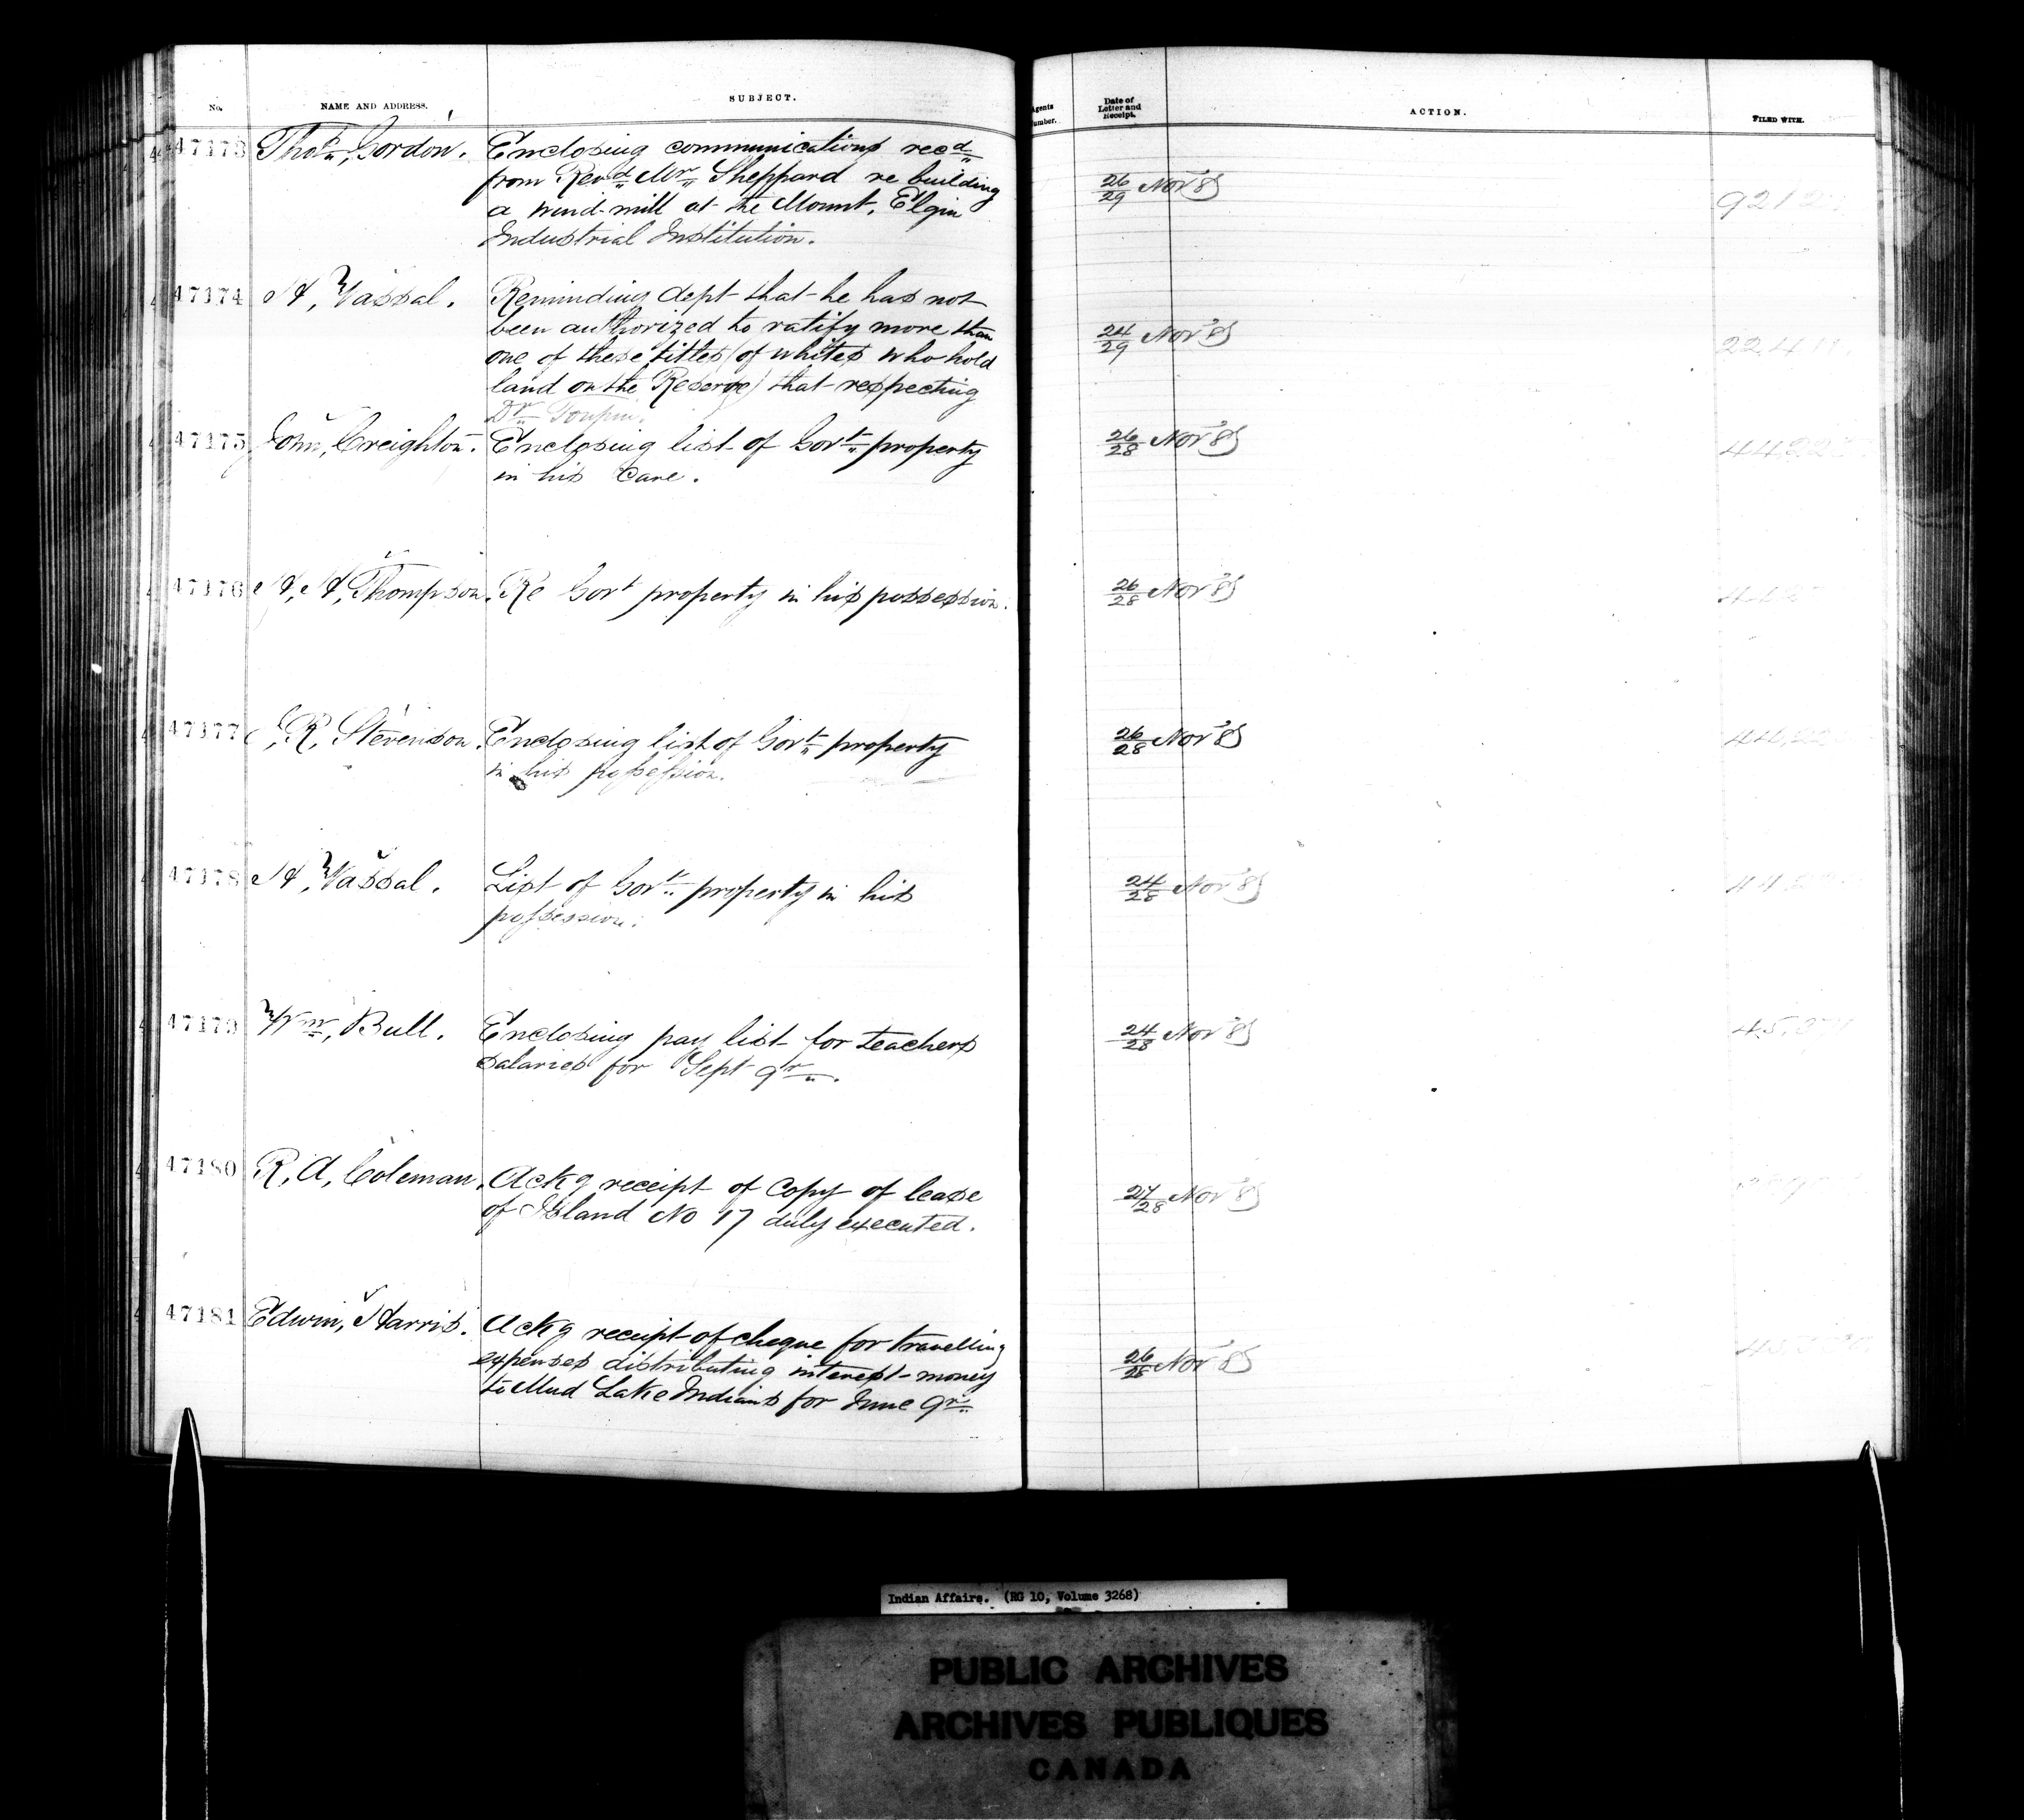 No. NAME AND ADDRESS. SUBJECT. Agents Number. Date of Letter and Receipt. ACTION. FILED WITH.
47173 Thos., Gordon. Enclosing communications recd
from Revd Mr Sheppard re building
a wind-mill at the Mount, Elgin
Industrial Institution.
26/29 Nov 85
47174 H, Vassal. Reminding dept that he has not
been authorized to ratify more than
one of these titles (of whites who hold
land on the Reserve) that respecting
Dr Toupin.
24/29 Nov 85
47175 John, Creighton. Enclosing list of Govt property
in his care.
26/28 Nov 85
47176 Thompson. Re Govt property in his possession.
26/28 Nov 85
47177 R, Stevenson. Enclosing list of Govt property
in his possession.
26/28 Nov 85
47178 H, Vassal. List of Govt property in his
possession.
24/28 Nov 85
47179 Wm, Bull. Enclosing pay list for teachers
salaries for Sept qr.
24/28 Nov 85
47180 R, A, Coleman. Ackg receipt of Copy of lease
of Island No 17 duly executed.
27/28 Nov 85
47181 Edwin, Harris. Ackg receipt of cheque for travelling
expenses distributing interest-money
to Mud Lake Indians for June qr
26/28 Nov 85
Indian Affairs. (RG 10, Volume 3268)
PUBLIC ARCHIVES
ARCHIVES PUBLIQUES
CANADA